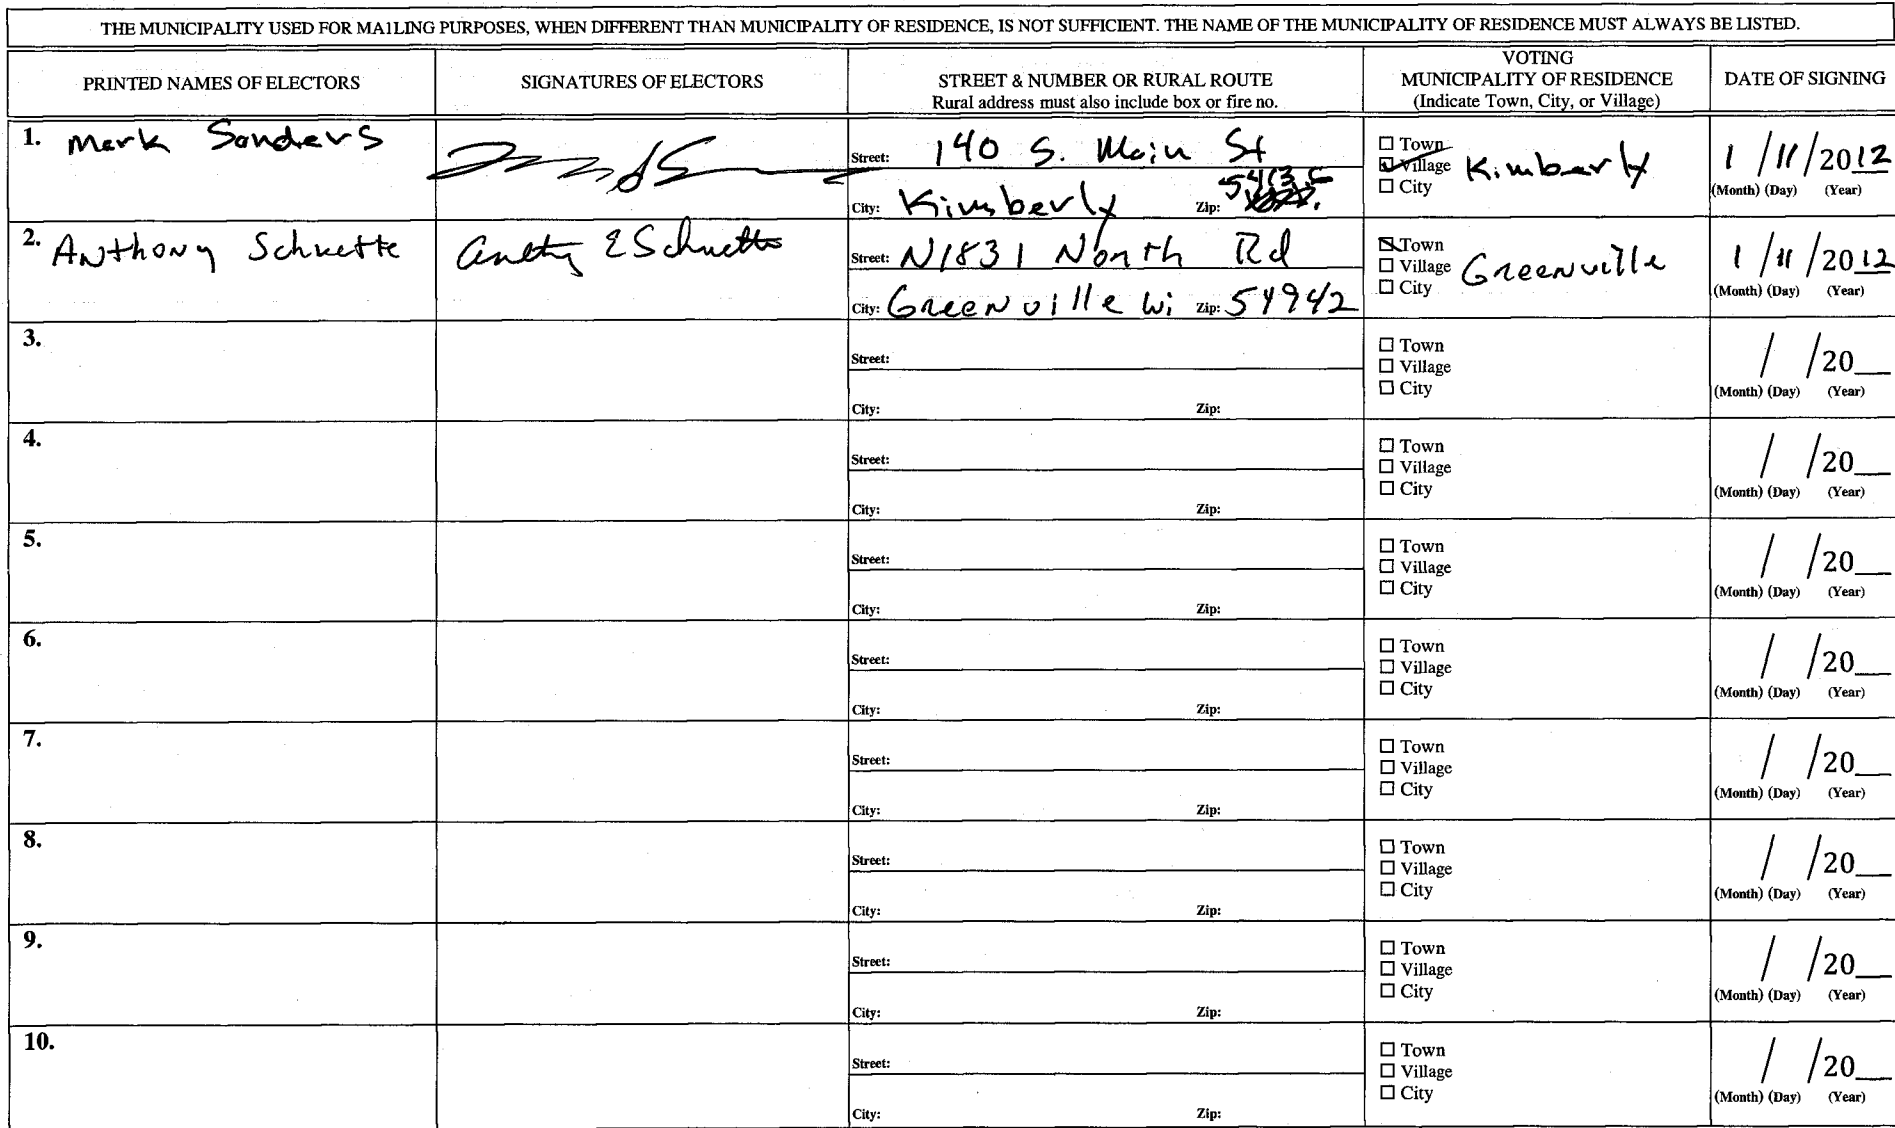 THE MUNICIPALITY USED FOR MAILING PURPOSES, WHEN DIFFERENT THAN MUNICIPALITY OF RESIDENCE, IS NOT SUFFICIENT. THE NAME OF THE MUNICIPALITY OF RESIDENCE MUST ALWAYS BE LISTED.
PRINTED NAMES OF ELECTORS
SIGNATURES OF ELECTORS
STREET & NUMBER OR RURAL ROUTE
Rural address must also include box or fire no.
VOTING
MUNICIPALITY OF RESIDENCE
(Indicate Town, City, or Village)
DATE OF SIGNING
1. Mark Sanders
Street: 140 S. Main St
City: Kimberly Zip:
☐ Town
☑ Village Kimberly
☐ City
1 / 11 / 2012
(Month) (Day) (Year)
2. Anthony Schuette
E Schuette
Street: N1831 North Rd
City: Greenville Wi Zip: 54942
☑ Town
☐ Village Greenville
☐ City
1 / 11 / 2012
(Month) (Day) (Year)
3.
Street:
City: Zip:
☐ Town
☐ Village
☐ City
/ / 20__
(Month) (Day) (Year)
4.
Street:
City: Zip:
☐ Town
☐ Village
☐ City
/ / 20__
(Month) (Day) (Year)
5.
Street:
City: Zip:
☐ Town
☐ Village
☐ City
/ / 20__
(Month) (Day) (Year)
6.
Street:
City: Zip:
☐ Town
☐ Village
☐ City
/ / 20__
(Month) (Day) (Year)
7.
Street:
City: Zip:
☐ Town
☐ Village
☐ City
/ / 20__
(Month) (Day) (Year)
8.
Street:
City: Zip:
☐ Town
☐ Village
☐ City
/ / 20__
(Month) (Day) (Year)
9.
Street:
City: Zip:
☐ Town
☐ Village
☐ City
/ / 20__
(Month) (Day) (Year)
10.
Street:
City: Zip:
☐ Town
☐ Village
☐ City
/ / 20__
(Month) (Day) (Year)